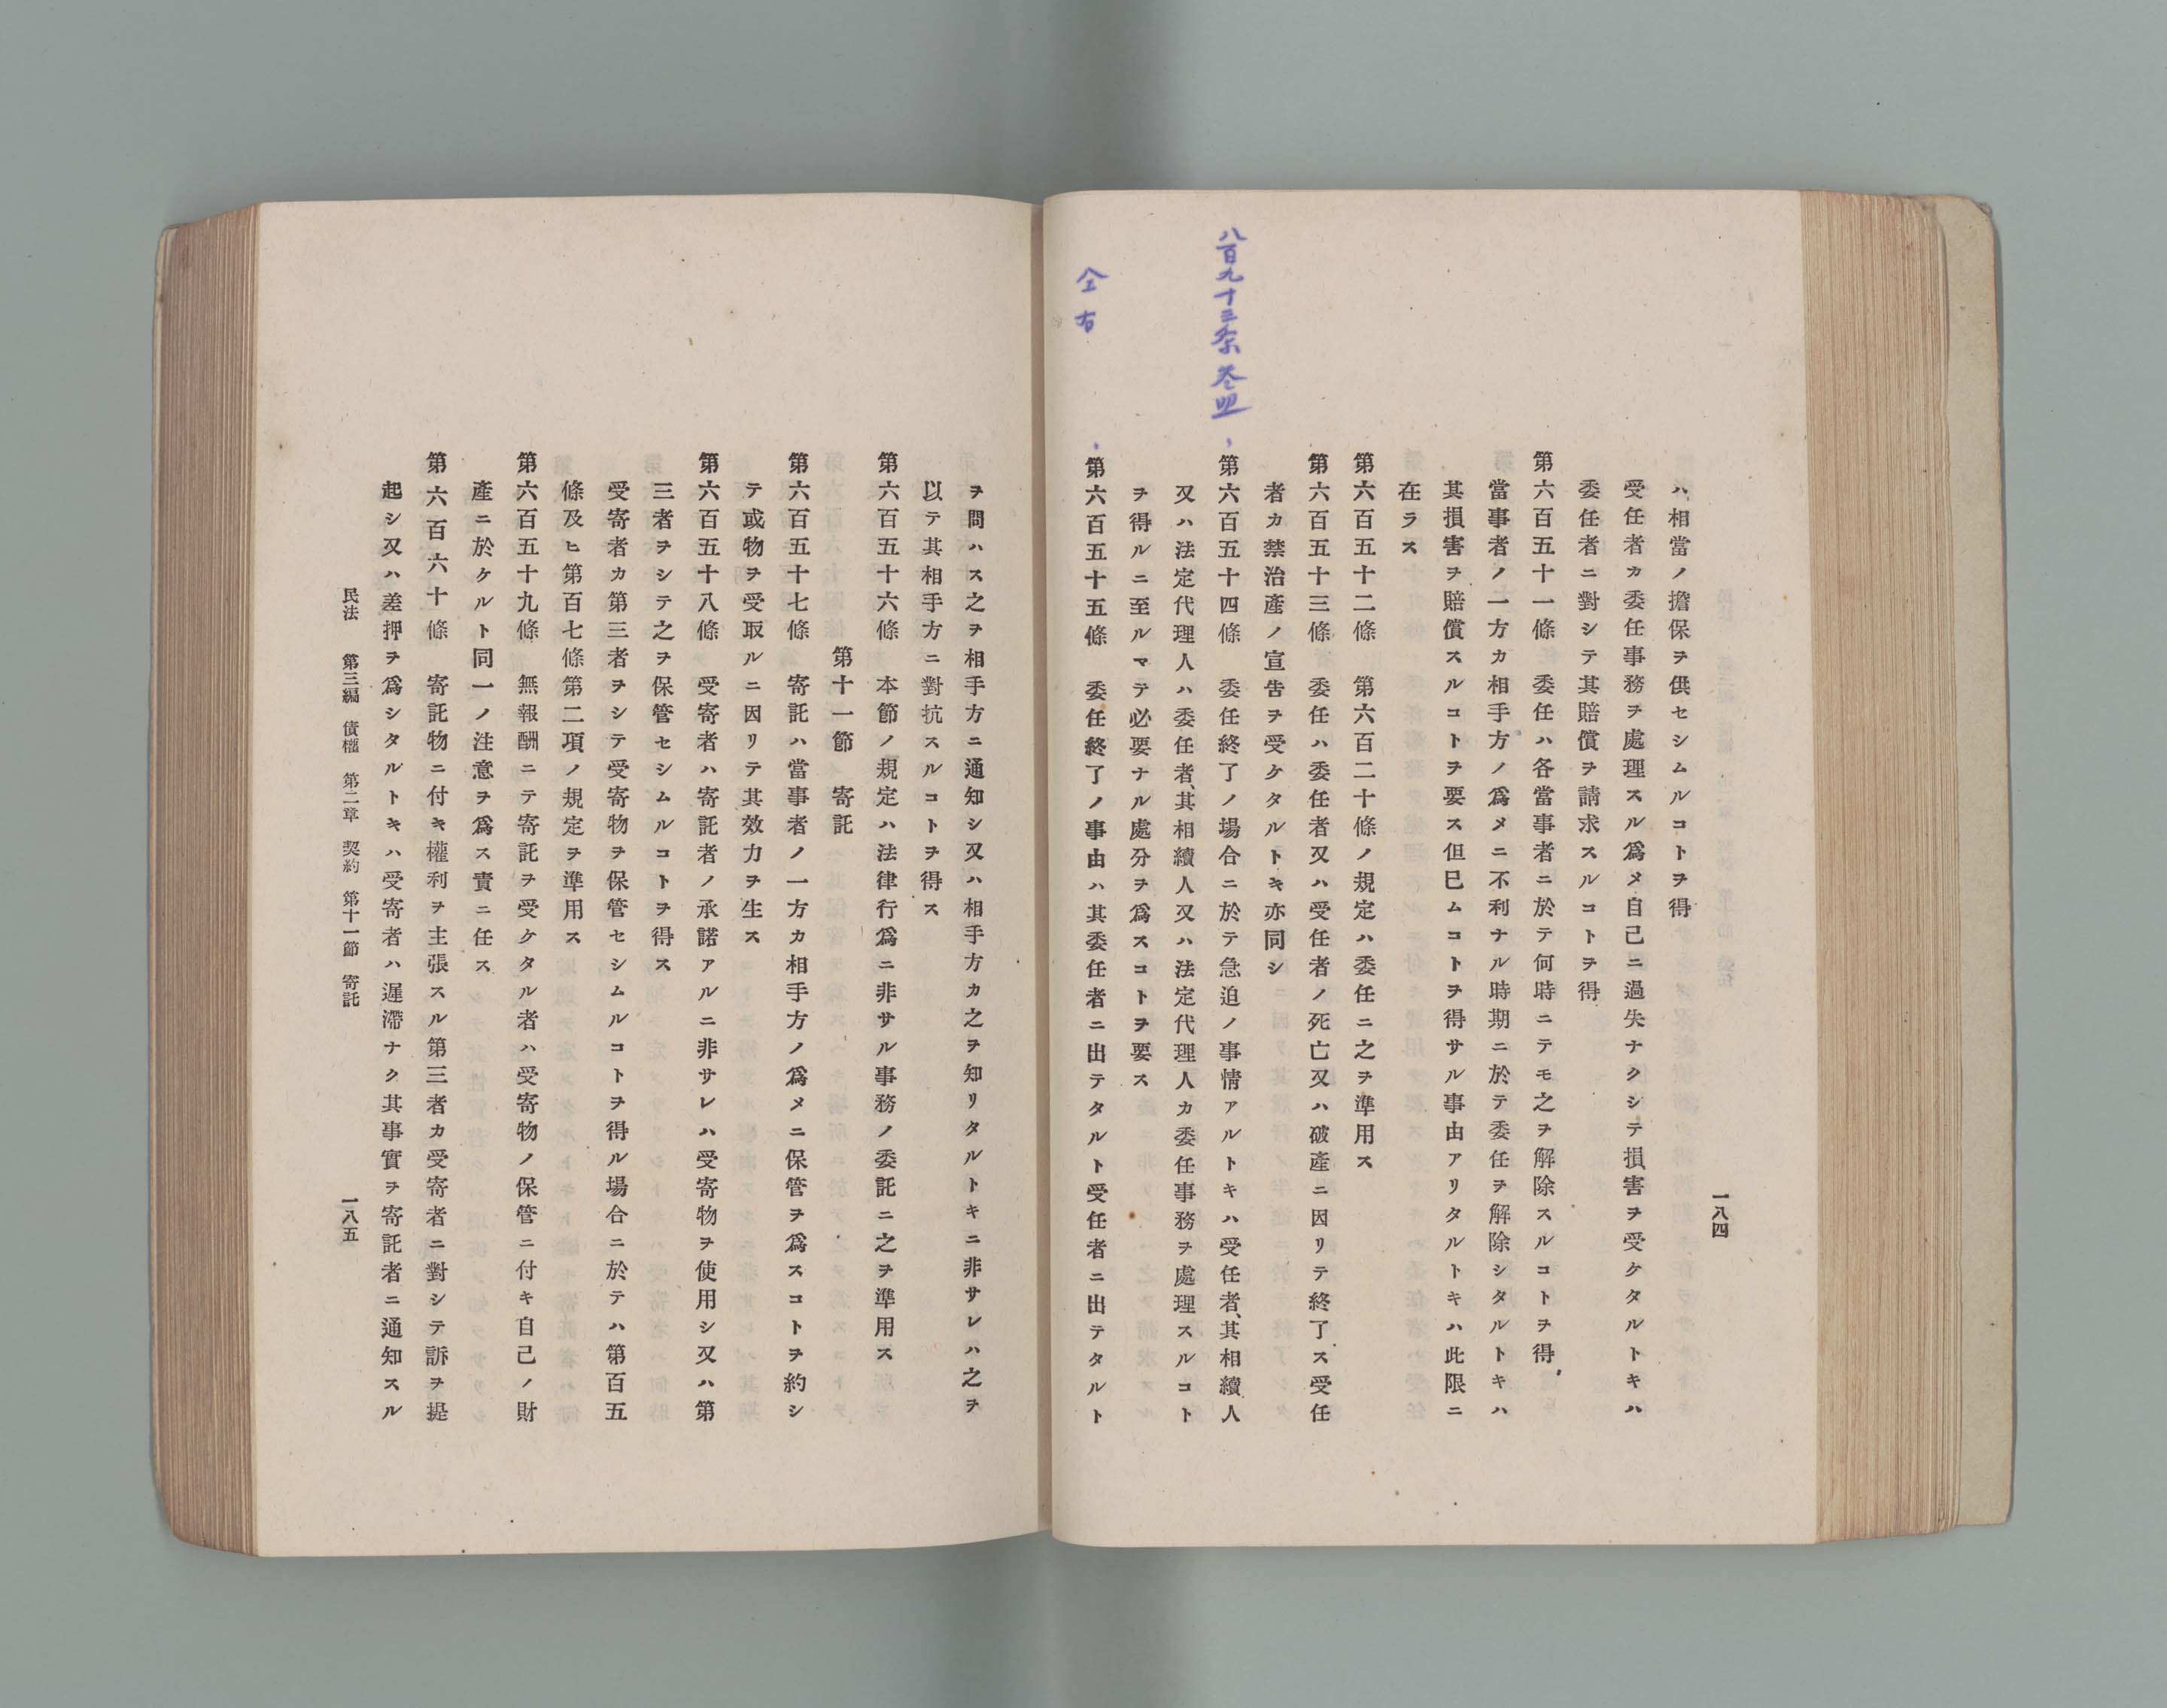 ハ相當ノ擔保ヲ供セシムルコトヲ得
受任者カ委任事務ヲ處理スル爲メ自己ニ過失ナクシテ損害ヲ受ケタルトキハ
委任者ニ對シテ其賠償ヲ請求スルコトヲ得
第六百五十一條 委任ハ各當事者ニ於テ何時ニテモ之ヲ解除スルコトヲ得
當事者ノ一方カ相手方ノ爲メニ不利ナル時期ニ於テ委任ヲ解除シタルトキハ
其損害ヲ賠償スルコトヲ要ス但已ムコトヲ得サル事由アリタルトキハ此限ニ
在ラス
第六百五十二條 第六百二十條ノ規定ハ委任ニ之ヲ準用ス
第六百五十三條 委任ハ委任者又ハ受任者ノ死亡又ハ破產ニ因リテ終了ス受任
者カ禁治產ノ宣吿ヲ受ケタルトキ亦同シ
八百九十三条参照
第六百五十四條 委任終了ノ場合ニ於テ急迫ノ事情アルトキハ受任者、其相續人
又ハ法定代理人ハ委任者、其相續人又ハ法定代理人カ委任事務ヲ處理スルコト
ヲ得ルニ至ルマテ必要ナル處分ヲ爲スコトヲ要ス
仝右
第六百五十五條 委任終了ノ事由ハ其委任者ニ出テタルト受任者ニ出テタルト
一八四
ヲ問ハス之ヲ相手方ニ通知シ又ハ相手方カ之ヲ知リタルトキニ非サレハ之ヲ
以テ其相手方ニ對抗スルコトヲ得ス
第六百五十六條 本節ノ規定ハ法律行爲ニ非サル事務ノ委託ニ之ヲ準用ス
第十一節 寄託
第六百五十七條 寄託ハ當事者ノ一方カ相手方ノ爲メニ保管ヲ爲スコトヲ約シ
テ或物ヲ受取ルニ因リテ其效力ヲ生ス
第六百五十八條 受寄者ハ寄託者ノ承諾アルニ非サレハ受寄物ヲ使用シ又ハ第
三者ヲシテ之ヲ保管セシムルコトヲ得ス
受寄者カ第三者ヲシテ受寄物ヲ保管セシムルコトヲ得ル場合ニ於テハ第百五
條及ヒ第百七條第二項ノ規定ヲ準用ス
第六百五十九條 無報酬ニテ寄託ヲ受ケタル者ハ受寄物ノ保管ニ付キ自己ノ財
產ニ於ケルト同一ノ注意ヲ爲ス責ニ任ス
第六百六十條 寄託物ニ付キ權利ヲ主張スル第三者カ受寄者ニ對シテ訴ヲ提
起シ又ハ差押ヲ爲シタルトキハ受寄者ハ遲滯ナク其事實ヲ寄託者ニ通知スル
民法 第三編 債權 第二章 契約 第十一節 寄託
一八五